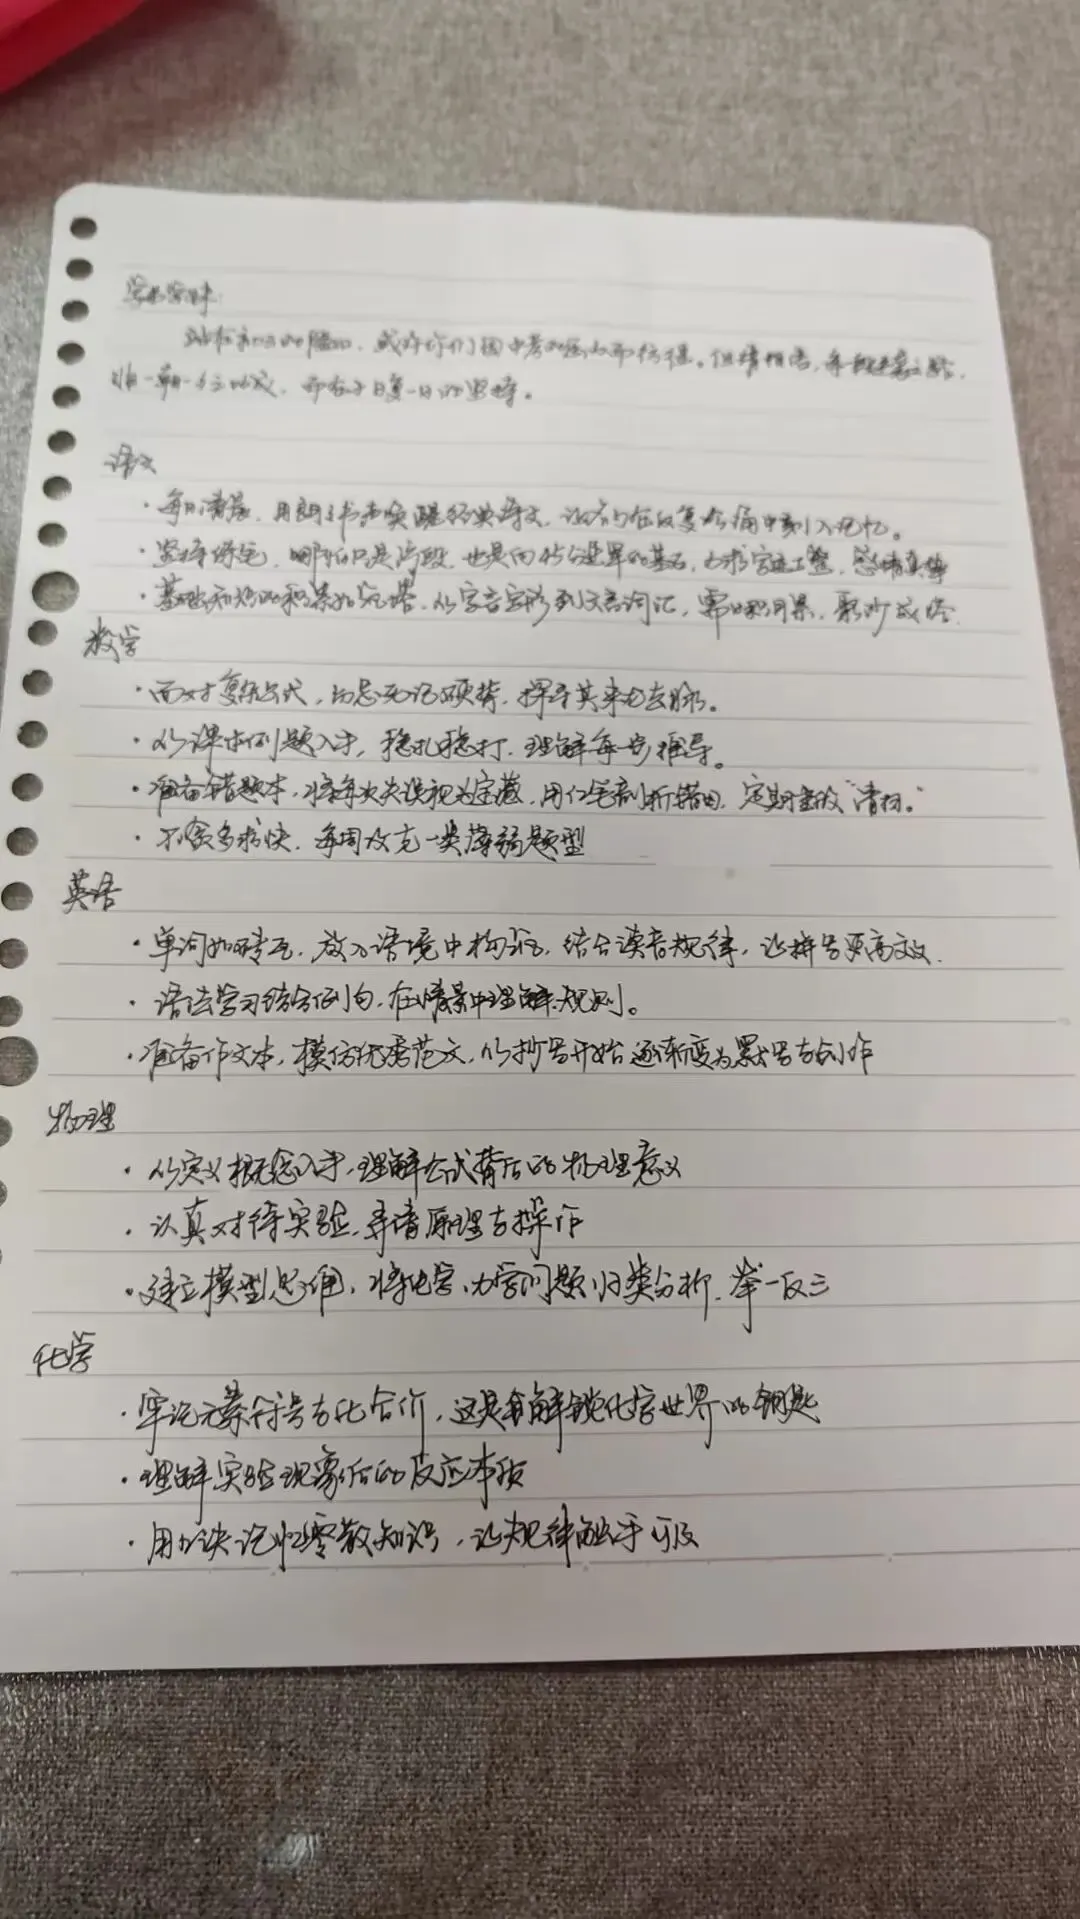 学弟学妹:
站在初三的路口，或许你们因中考的压力而彷徨。但请相信，每
非一朝一夕之功成，而在于日复一日的坚持。
语文
·每日清晨，用朗朗书声唤醒经典诗文，让名句在反复吟诵中刻入记忆。
·坚持练笔，哪怕只是片段，也是向满分进军的基石，力求字迹工整，感情真挚
·基础知识的积累如筑塔，从字音字形到文言词汇，需日积月累，聚沙成塔.
数学
·面对复杂公式，勿忘死记硬背，探寻其来龙去脉。
·从课本例题入手，稳扎稳打，理解每一步推导。
·准备错题本，将每次失误视为宝藏，用红笔剖析错因，定期重做“清扫”
·不贪多求快，每周攻克一类薄弱题型
英语
·单词如砖瓦，放入语境中构筑，结合读音规律，让拼写更高效.
·语法学习结合例句，在情景中理解规则。
·准备作文本，模仿优秀范文，从抄写开始逐渐变为默写与创作
物理
·从定义概念入手，理解公式背后的物理意义
·认真对待实验，弄清原理与操作
·建立模型思维，将电学、力学问题归类分析，举一反三
化学
·牢记元素符号与化合价，这是解锁化学世界的钥匙
·理解实验现象后的反应本质
·用口诀记忆零散知识，让规律触手可及